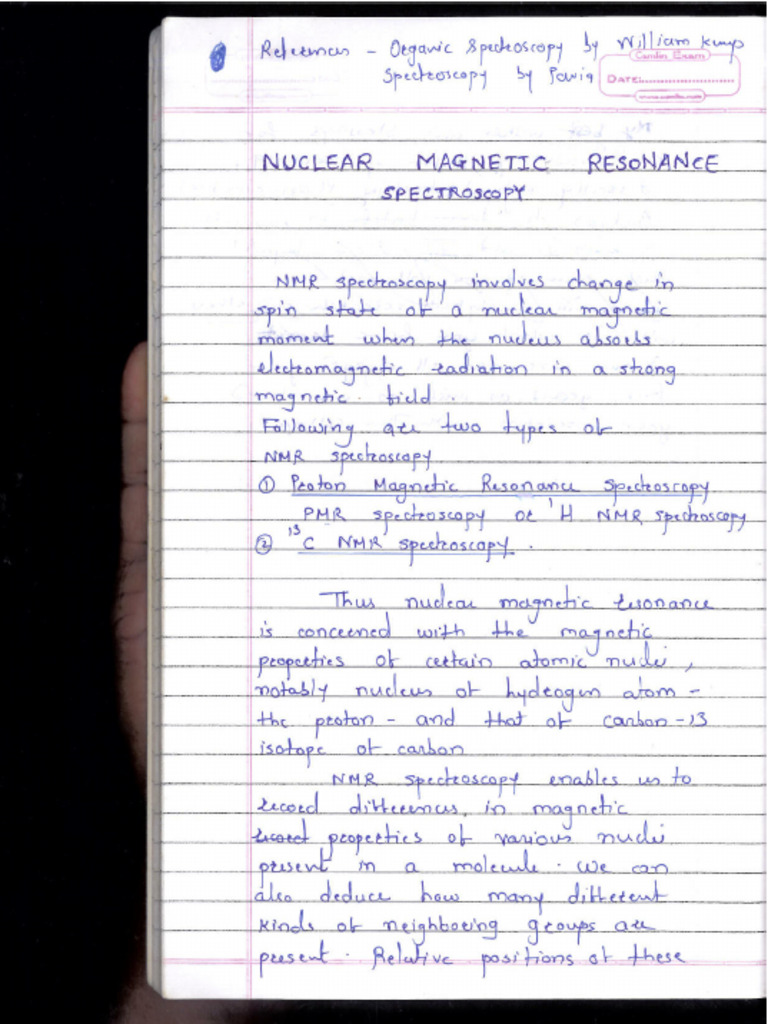 References - Organic Spectroscopy by William Kemp
Spectroscopy by Pavia
Camlin Exam
DATE:
NUCLEAR MAGNETIC RESONANCE
SPECTROSCOPY
NMR spectroscopy involves change in
spin state of a nuclear magnetic
moment when the nucleus absorbs
electromagnetic radiation in a strong
magnetic field.
Following are two types of
NMR spectroscopy
① Proton Magnetic Resonance Spectroscopy
PMR spectroscopy or ¹H NMR spectroscopy
② ¹³C NMR spectroscopy.
Thus nuclear magnetic resonance
is concerned with the magnetic
properties of certain atomic nuclei,
notably nucleus of hydrogen atom -
the proton - and that of carbon-13
isotope of carbon
NMR spectroscopy enables us to
record differences, in magnetic
record properties of various nuclei
present in a molecule. We can
also deduce how many different
kinds of neighboring groups are
present. Relative positions of these